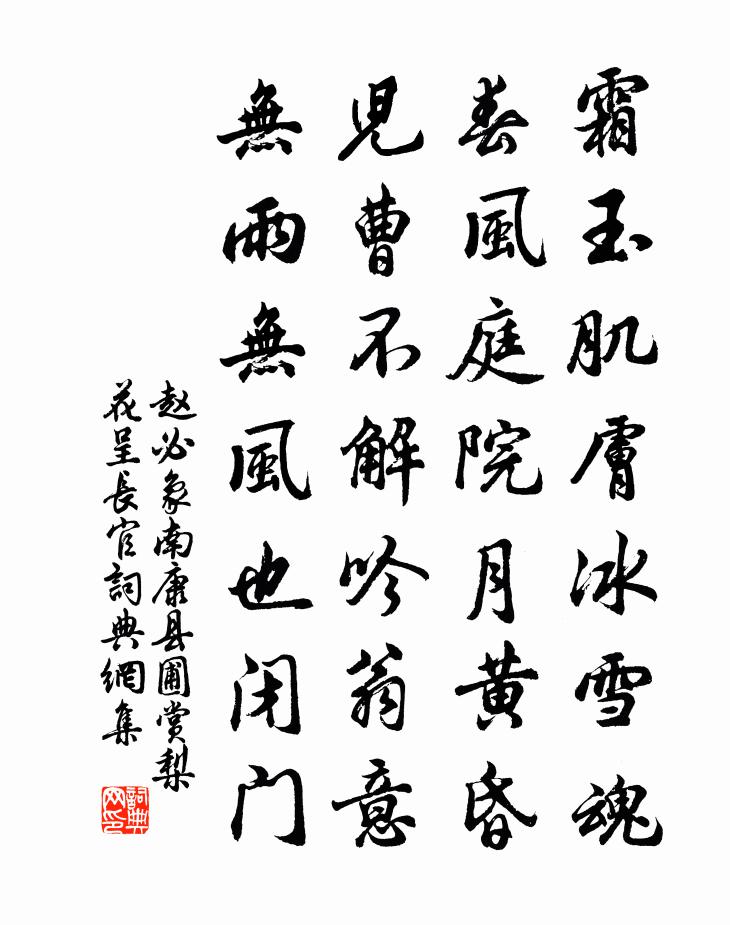 霜玉肌膚冰雪魂
春風庭院月黃昏
兒曹不解吟翁意
無雨無風也闭门
赵必象南康县圃赏梨
花呈長官詞典網集
詞典网印